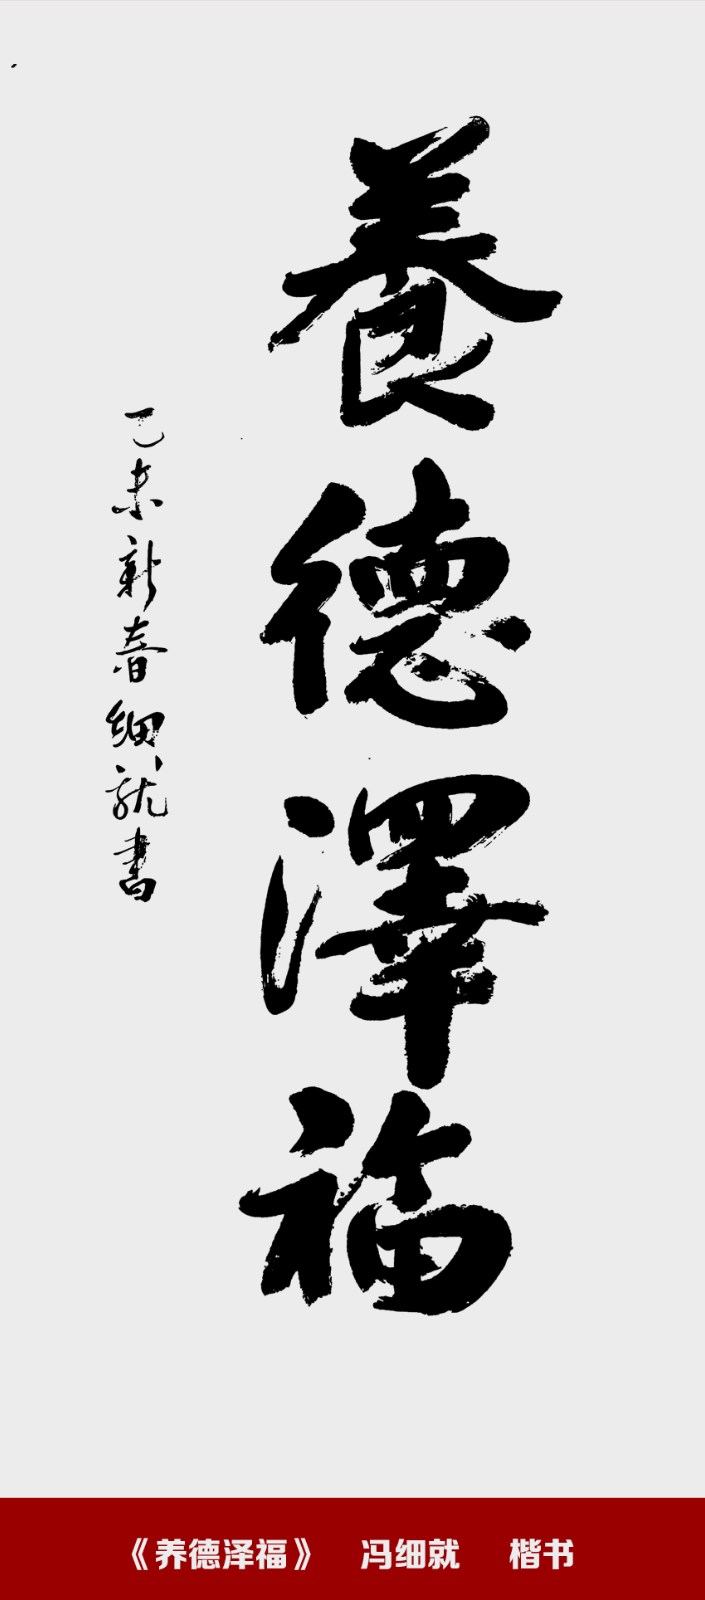 養德澤福
乙未新春細就書
《养德泽福》 冯细就 楷书